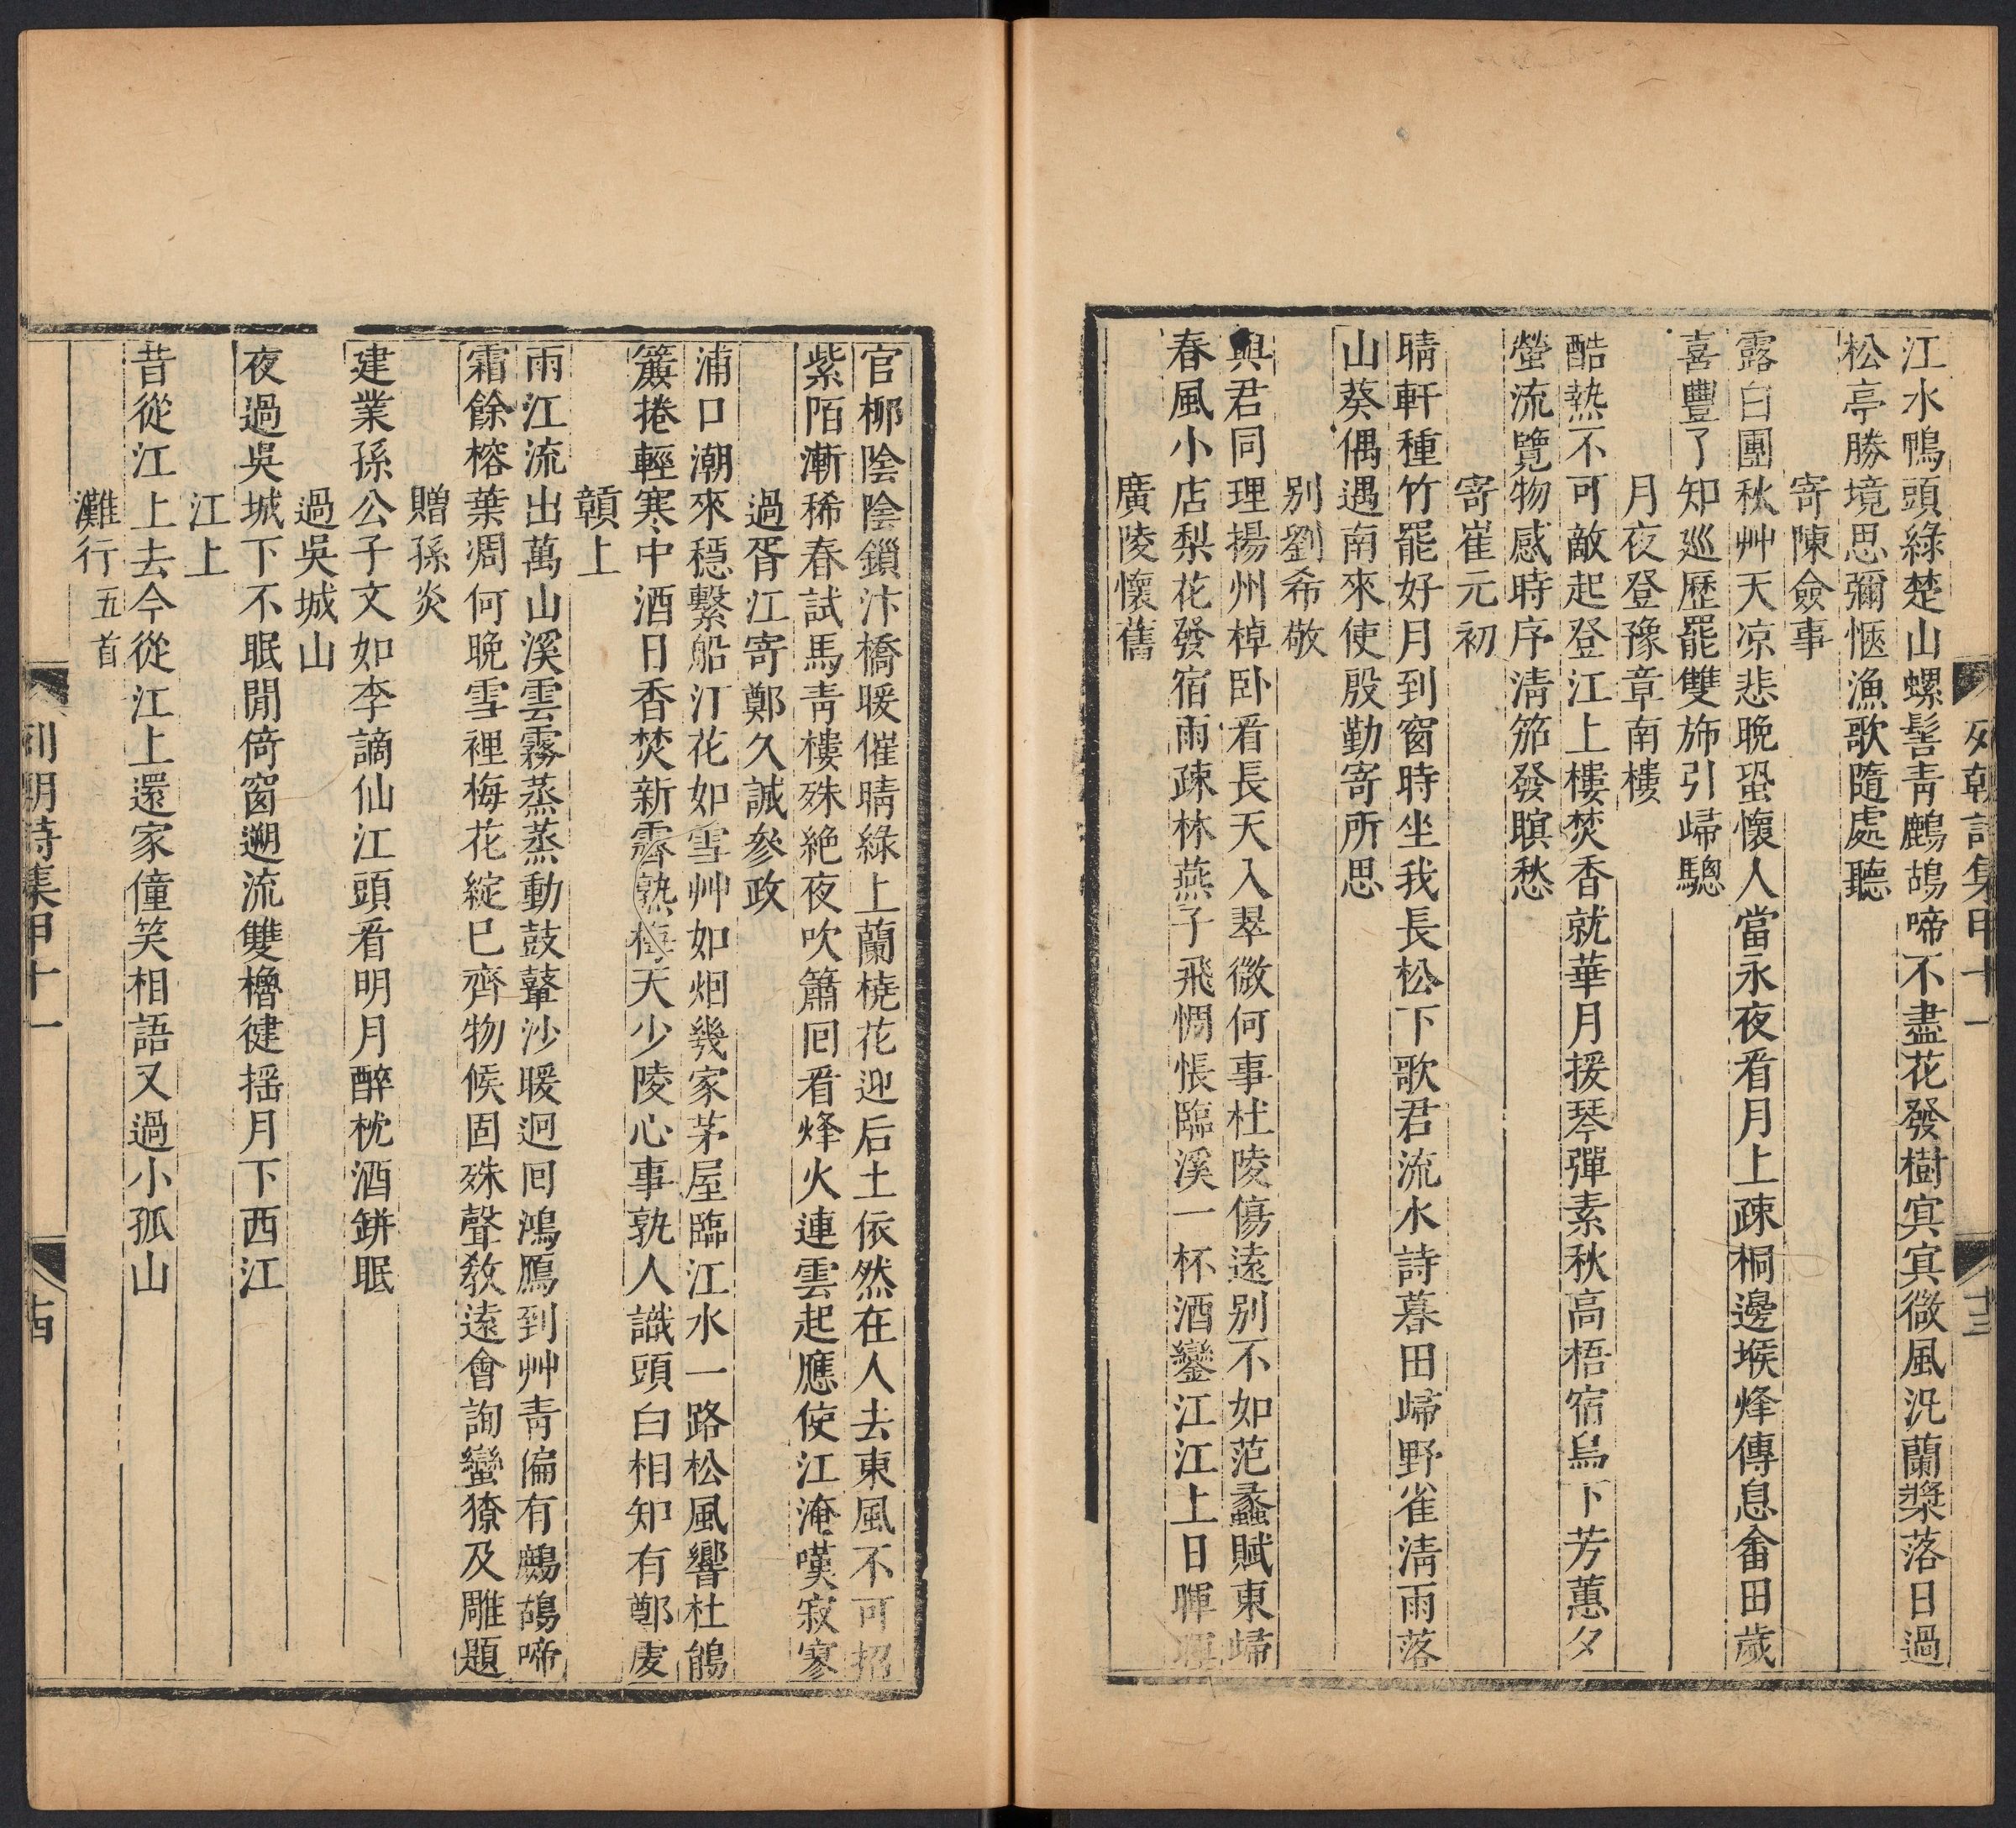 江水鴨頭綠楚山螺髻青鷓鴣啼不盡花發樹冥冥微風汎蘭槳落日過
松亭勝境思彌愜漁歌隨處聽
寄陳僉事
露白團秋艸天凉悲晚蛩懷人當永夜看月上疎桐邊堠烽傳息畬田歲
喜豐了知巡歷罷雙斾引歸驄
月夜登豫章南樓
酷熱不可敵起登江上樓焚香就華月援琴彈素秋高梧宿烏下芳蕙夕
螢流覽物感時序淸笳發瞑愁
寄崔元初
晴軒種竹罷好月到窗時坐我長松下歌君流水詩暮田歸野雀淸雨落
山葵偶遇南來使殷勤寄所思
别劉希敬
與君同理揚州棹卧看長天入翠微何事杜陵傷遠别不如范蠡賦東歸
春風小店梨花發宿雨疎林燕子飛惆悵臨溪一杯酒鑾江江上日暉暉
廣陵懷舊
列朝詩集甲十一
十三
官柳陰陰鎖汴橋暖催晴綠上蘭橈花迎后土依然在人去東風不可招
紫陌漸稀春試馬靑樓殊絶夜吹簫囘看烽火連雲起應使江淹嘆寂寥
過胥江寄鄭久誠參政
浦口潮來穩繫船汀花如雪艸如烟幾家茅屋臨江水一路松風響杜鵑
簾捲輕寒中酒日香焚新霽熟梅天少陵心事孰人識頭白相知有鄭虔
贛上
雨江流出萬山溪雲霧蒸蒸動鼓鼙沙暖迴囘鴻鴈到艸靑偏有鷓鴣啼
霜餘榕葉凋何晚雪裡梅花綻巳齊物候固殊聲敎遠會詢蠻獠及雕題
贈孫炎
建業孫公子文如李謫仙江頭看明月醉枕酒缾眠
過吳城山
夜過吳城下不眠閒倚窗遡流雙櫓健摇月下西江
江上
昔從江上去今從江上還家僮笑相語又過小孤山
灘行五首
列朝詩集甲十一
十四